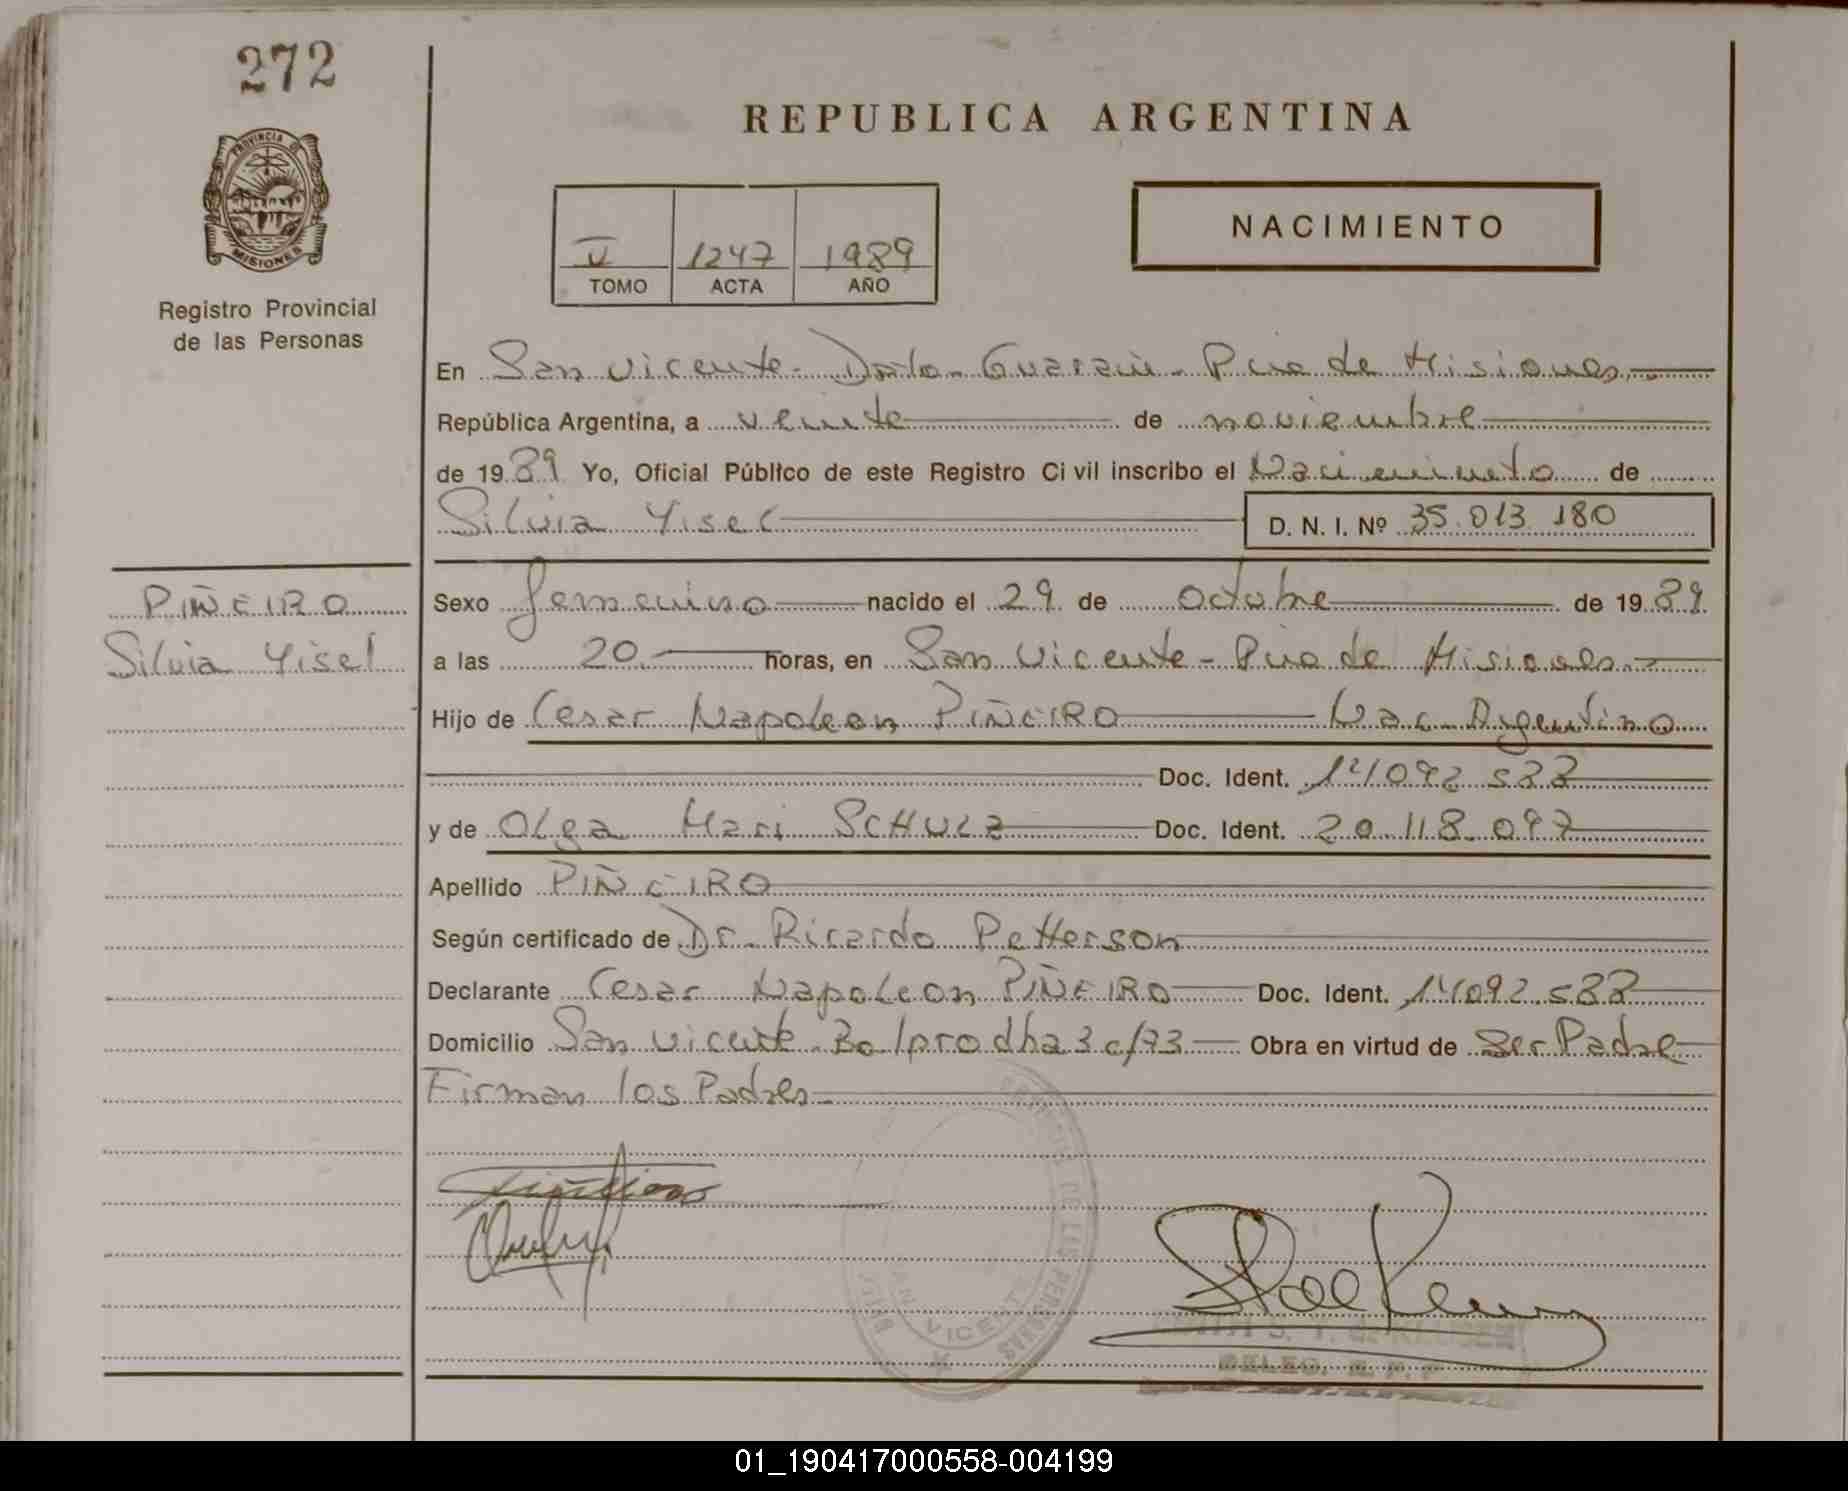 272
REPUBLICA ARGENTINA
PROVINCIA DE
MISIONES
Registro Provincial
de las Personas
V 1247 1989
TOMO ACTA AÑO
NACIMIENTO
En San Vicente - Dpto - Guaraní - Pcia de Misiones
República Argentina, a veinte de noviembre
de 1989 Yo, Oficial Público de este Registro Civil inscribo el Nacimiento de
Silvia Yisel D. N. I. Nº 35.013.180
PIÑEIRO
Silvia Yisel
Sexo femenino nacido el 29 de octubre de 1989
a las 20 horas, en San Vicente - Pcia de Misiones
Hijo de Cesar Napoleon PIÑEIRO Nac. Argentino
Doc. Ident. 14092.588
y de Olga Mari SCHULZ Doc. Ident. 20.118.097
Apellido PIÑEIRO
Según certificado de Dr. Ricardo Petterson
Declarante Cesar Napoleon PIÑEIRO Doc. Ident. 14092.588
Domicilio San Vicente - Obra en virtud de Ser Padre
Firman los Padres
DE LAS PERSONAS
VICENTE
01_190417000558-004199